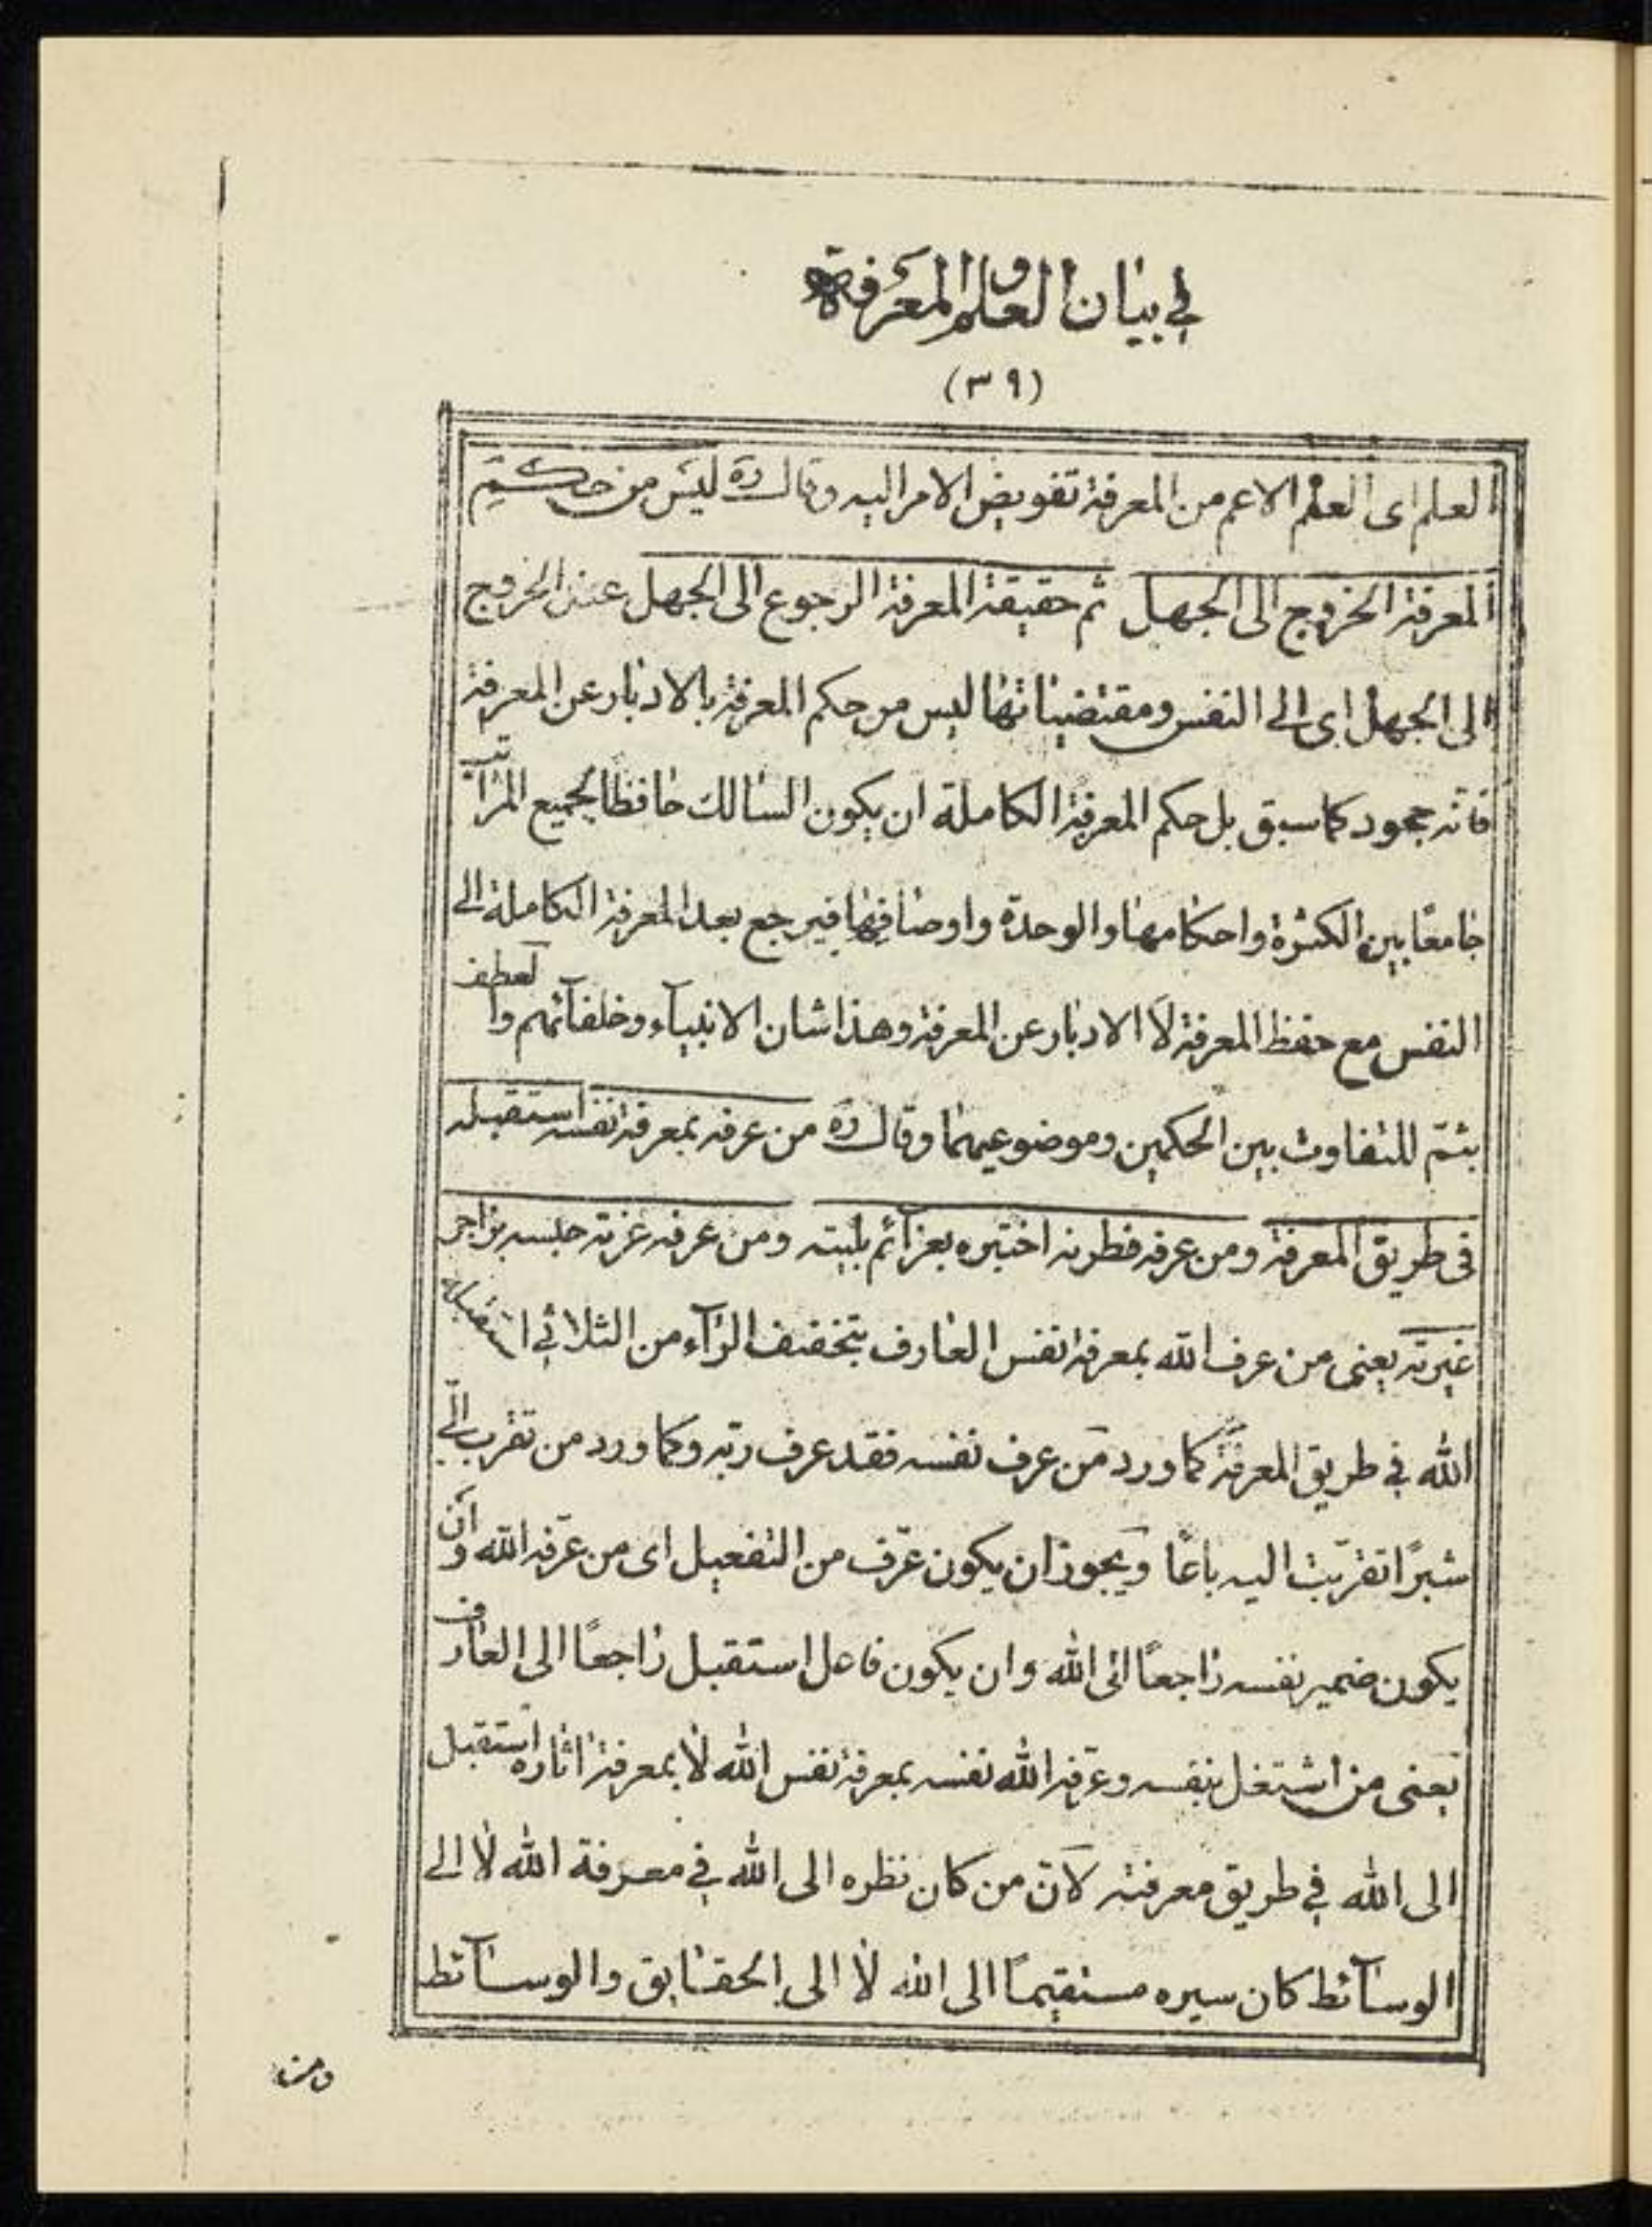 في بيان العلم والمعرفة
(٣٩)
العلم اى العلم الاعم من المعرفة تفويض الامر اليه وقال ره ليس من حكم
المعرفة الخروج الى الجهل ثم حقيقة المعرفة الرجوع الى الجهل عند الخروج
الى الجهل اى الى النفس ومقتضياتها ليس من حكم المعرفة بالادبار عن المعرفة
فانه جحود كما سبق بل حكم المعرفة الكاملة ان يكون السالك حافظا لجميع المراتب
جامعًا بين الكثرة واحكامها والوحدة واوصافها فيرجع بعد المعرفة الكاملة الى
النفس مع حفظ المعرفة لا الادبار عن المعرفة وهذا شان الانبياء وخلفائهم والعطف
بثمّ للتفاوت بين الحكمين وموضوعيهما وقال ره من عرفه بمعرفة نفسه استقبله
فى طريق المعرفة ومن عرفه فطرته اختبره بعزائم بليته ومن عرفه عزته حبسه بزاجر
غيرته يعنى من عرف الله بمعرفة نفس العارف بتخفيف الراء من الثلاثي استقبله
الله في طريق المعرفة كما ورد من عرف نفسه فقد عرف ربّه وكما ورد من تقرب الىّ
شبرًا تقربت اليه باعًا ويجوز ان يكون عرّف من التفعيل اى من عرّفه الله وان
يكون ضمير نفسه راجعًا الى الله وان يكون فاعل استقبل راجعًا الى العارف
يعنى من اشتغل بنفسه وعرّفه الله نفسه بمعرفة نفس الله لا بمعرفة اثاره استقبل
الى الله في طريق معرفته لانّ من كان نظره الى الله في معرفة الله لا الى
الوسائط كان سيره مستقيمًا الى الله لا الى الحقايق والوسائط
ومن